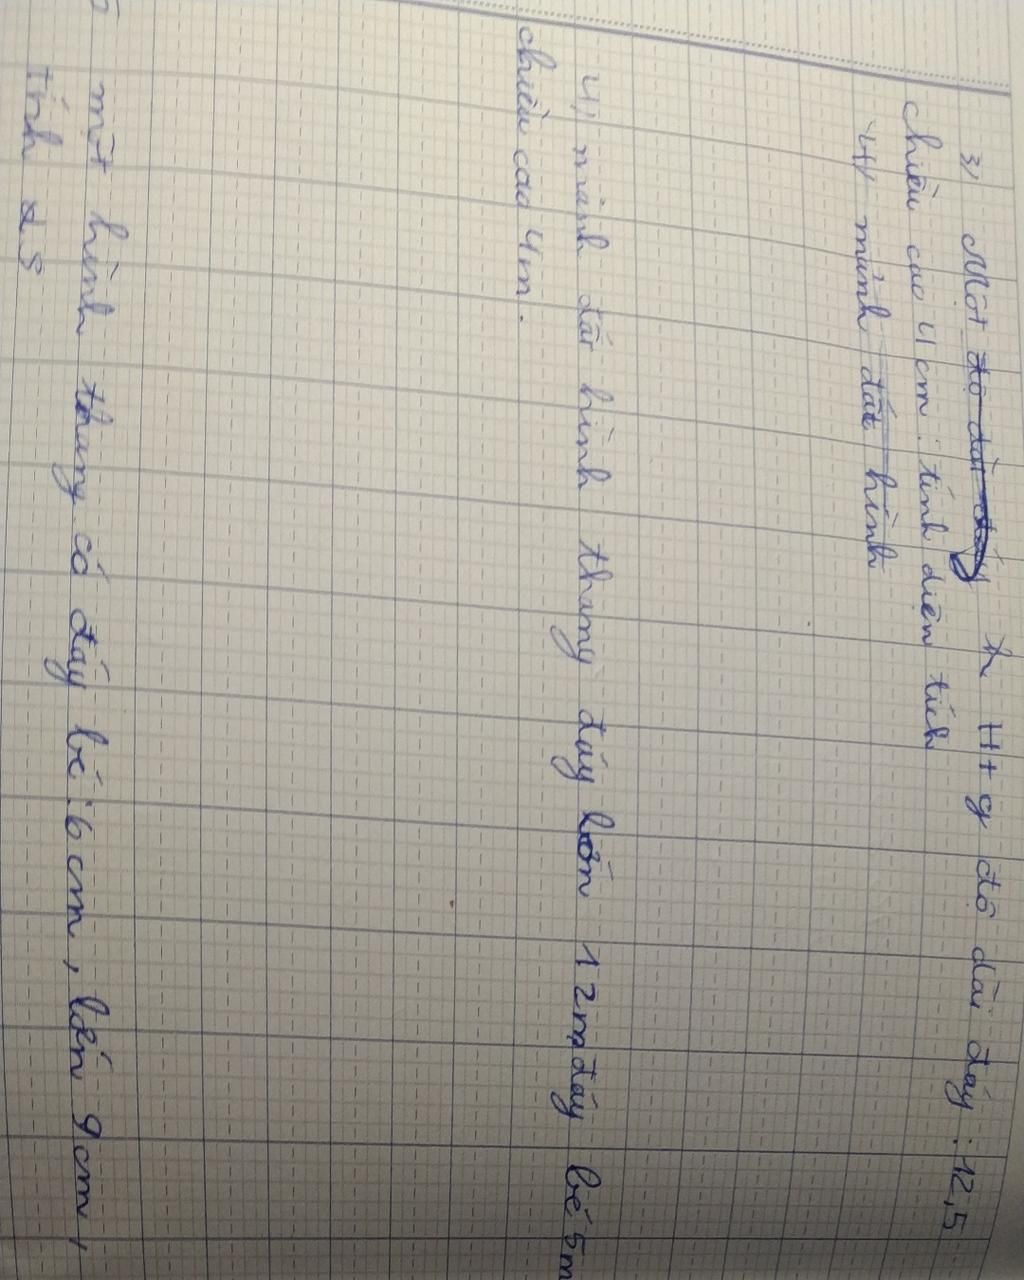 3) Một độ dài đáy h Htg độ dài đáy : 12,5
chiều cao 4 cm. tính diện tích
4) mảnh đất hình
4) mảnh đất hình thang đáy lớn 12m đáy bé 5m
chiều cao 4m.
một hình thang có đáy bé : 6 cm, lớn 9 cm,
Tính S